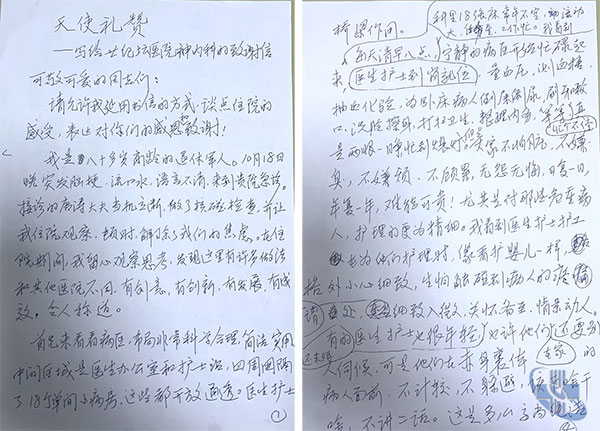 天使礼赞
——写给世纪坛医院神内科的致谢信
可敬可爱的同志们：
请允许我使用书信的方式，谈点住院的
感受，表达对你们的感恩致谢！
我是八十多岁高龄的退休军人。10月18日
晚突发脑梗，流口水，语言不清，来到贵院急诊。
接诊的唐涛大夫当机立断，做了核磁检查，并让
我住院观察。顿时，解除了我们的焦虑。在住
院期间，我留心观察思考，发现这里有许多做法
和其他医院不同，有创意，有创新，有发展，有成
效。令人称道。
首先来看看病区，布局非常科学合理，简洁实用
中间区域是医生办公室和护士站，四周间隔
了18个单间小病房，这些都开放通透。医生护士
①
科里18张床常年不空，
每天清早八点，宁静的病区开始忙碌起
来，医生护士到
量血压，测血糖，
抽血化验，为卧床病人倒尿，刷牙漱
口，洗脸擦身，打扫卫生，整理内务，等等，真
忙个不停
是两眼一睁忙到
不怕脏，不嫌
臭，不嫌烦，不顾累，无怨无悔，日复一日，
年复一年，难能可贵！尤其是对那些危重病
人，护理的更为精细。我看到医生护士护工
为他们护理时，像看护婴儿一样，
格外小心细致，生怕碰到病人的
处，细致入微，关怀备至，情景动人。
有的医生护士也很年轻，也许他们还要别
人伺候，可是他们在赤身裸体的
病人面前，不计较，不躲避，
啥，不讲二话。这是多么高尚